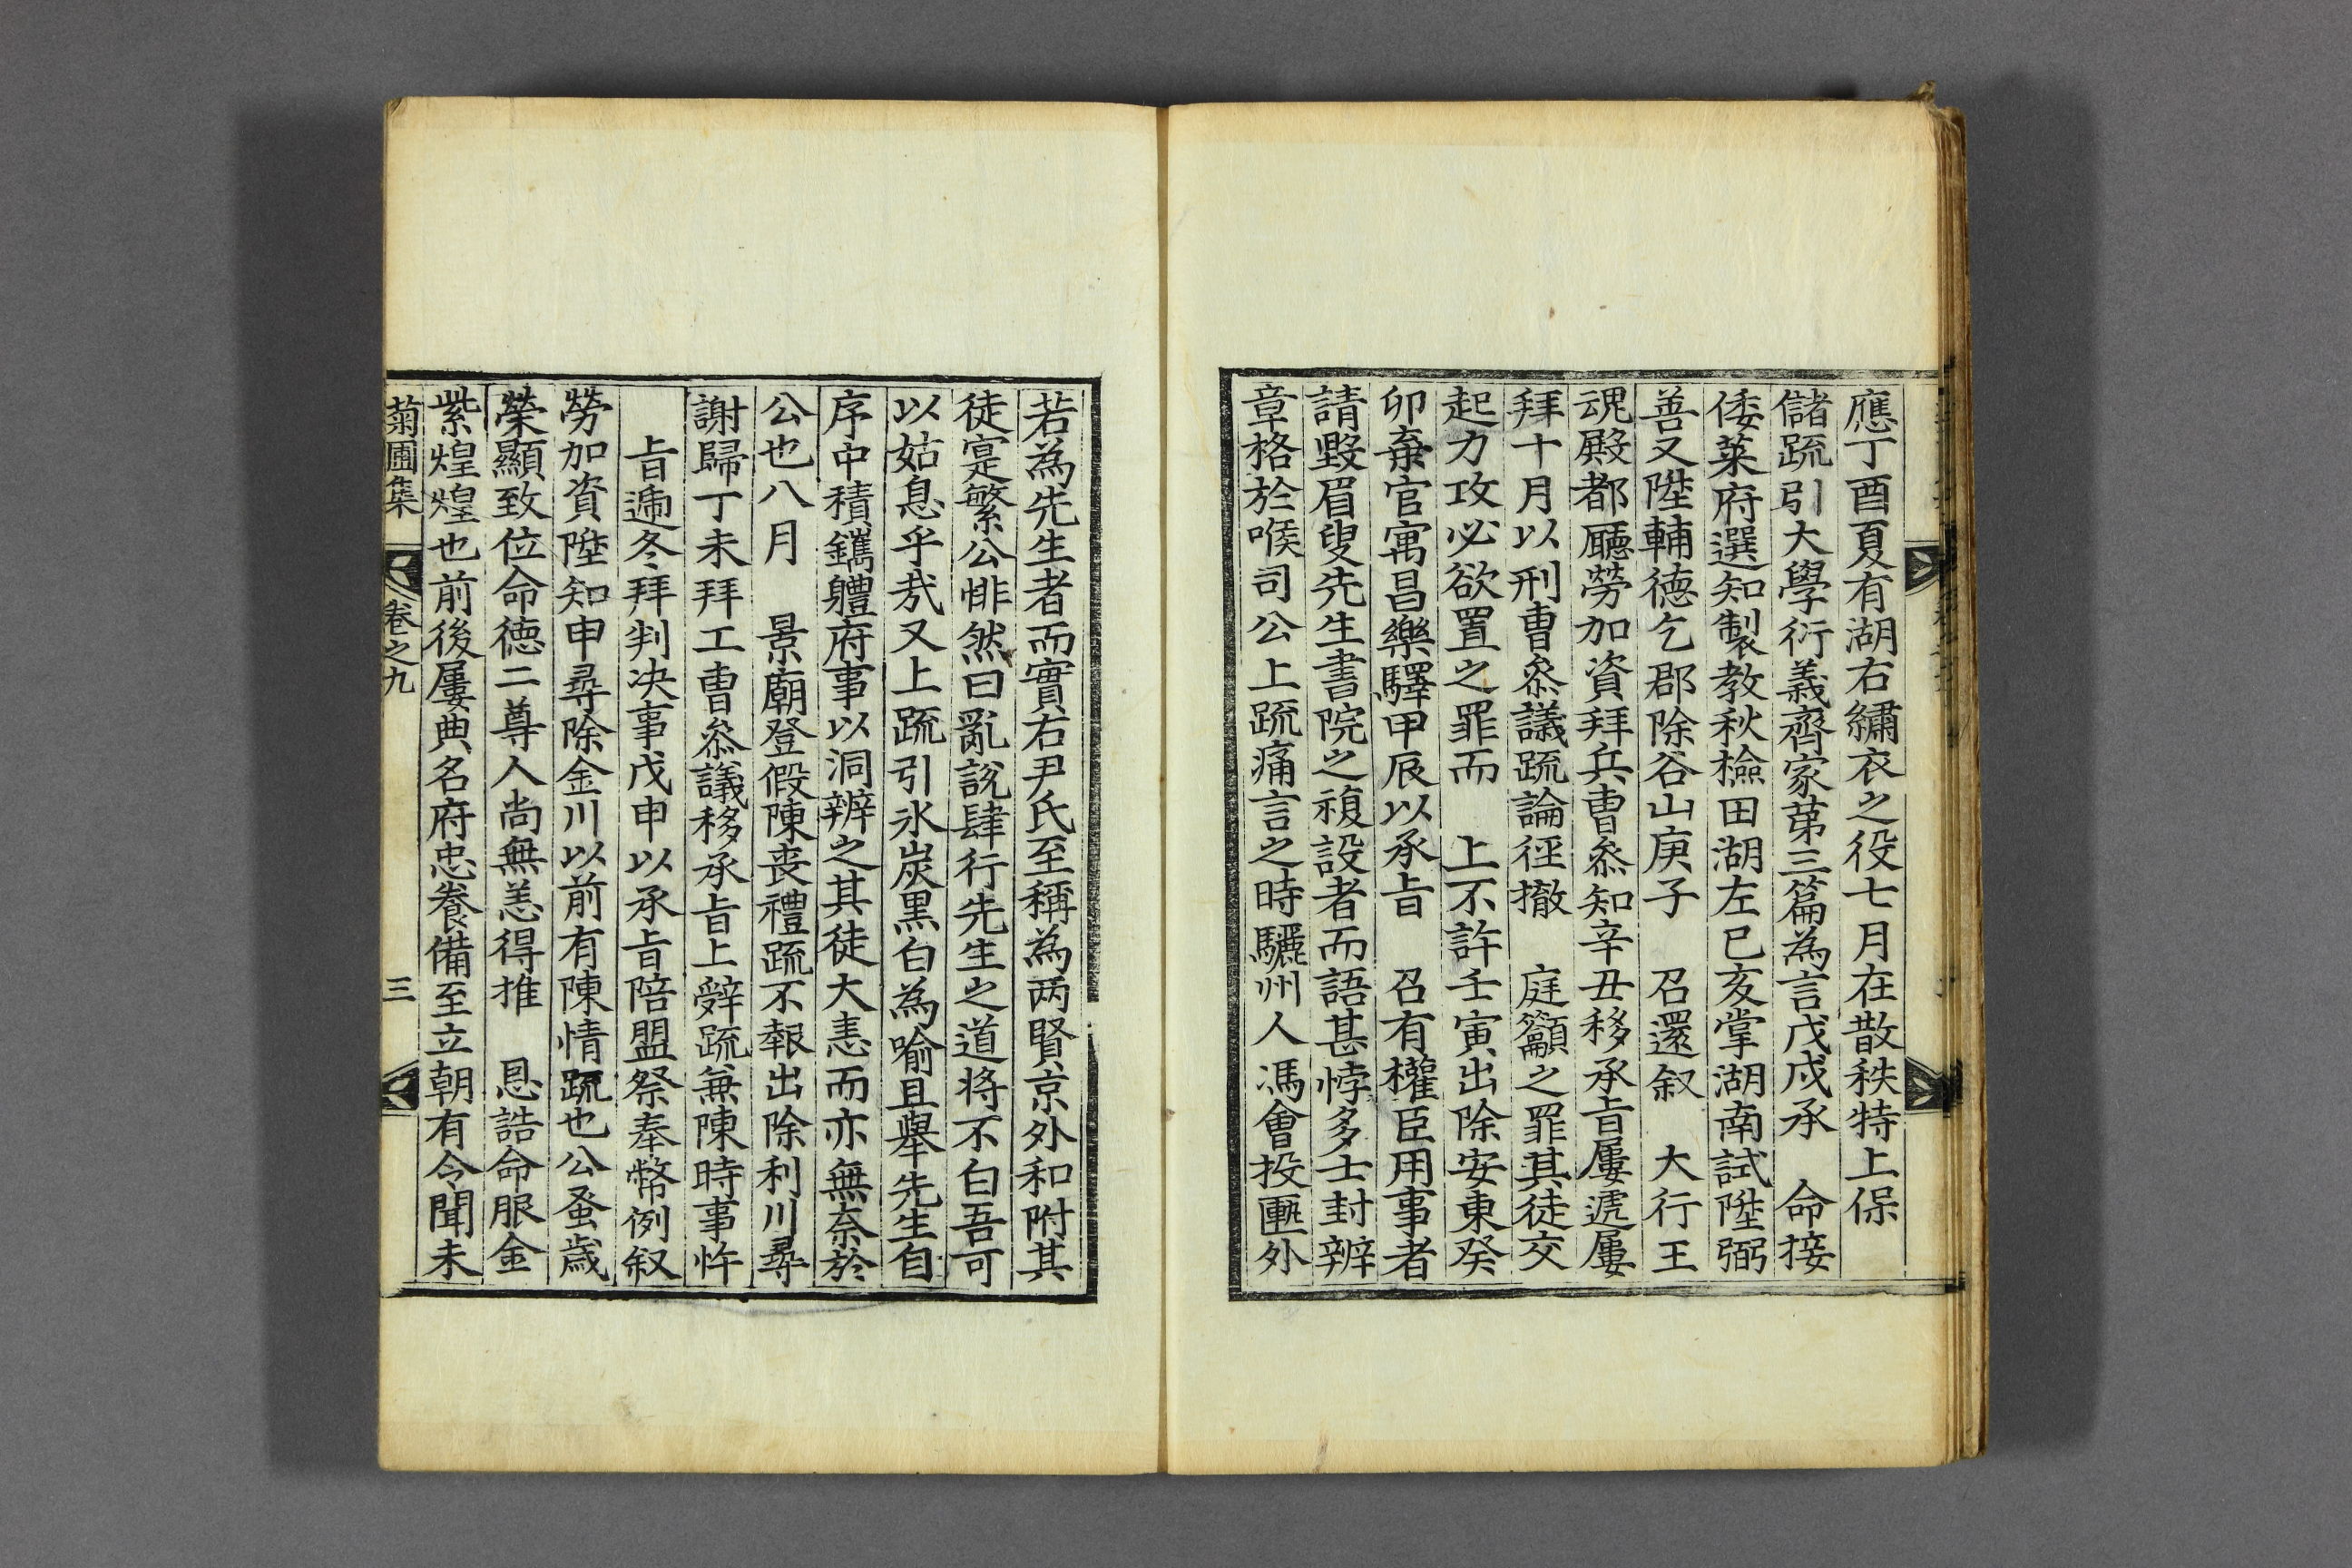 應丁酉夏有湖右繡衣之役七月在散秩特上保
儲疏引大學衍義齊家第三篇為言戊戌承　命接
倭萊府選知製教秋檢田湖左已亥掌湖南試陞弼
善又陞輔德乞郡除谷山庚子　召還叙　大行王
魂殿都廳勞加資拜兵曹叅知辛丑移承旨屢遞屢
拜十月以刑曹叅議疏論徑撤　庭籲之罪其徒交
起力攻必欲置之罪而　上不許壬寅出除安東癸
卯棄官寓昌樂驛甲辰以承旨　召有權臣用事者
請毀眉叟先生書院之複設者而語甚悖多士封辨
章格於喉司公上疏痛言之時驪州人馮會投匭外
若為先生者而實右尹氏至稱為两賢京外和附其
徒寔繁公悱然曰亂說肆行先生之道将不白吾可
以姑息乎㢤又上疏引氷炭黑白為喻且舉先生自
序中積鑴軆府事以洞辨之其徒大恚而亦無奈於
公也八月　景廟登假陳丧禮疏不報出除利川尋
謝歸丁未拜工曹叅議移承旨上辤疏兼陳時事忤
旨遞冬拜判决事戊申以承旨陪盟祭奉幣例叙
勞加資陞知申尋除金川以前有陳情疏也公蚤歲
榮顯致位命德二尊人尚無恙得推　恩誥命服金
紫煌煌也前後屢典名府忠養備至立朝有令聞未
菊圃集　卷之九　三